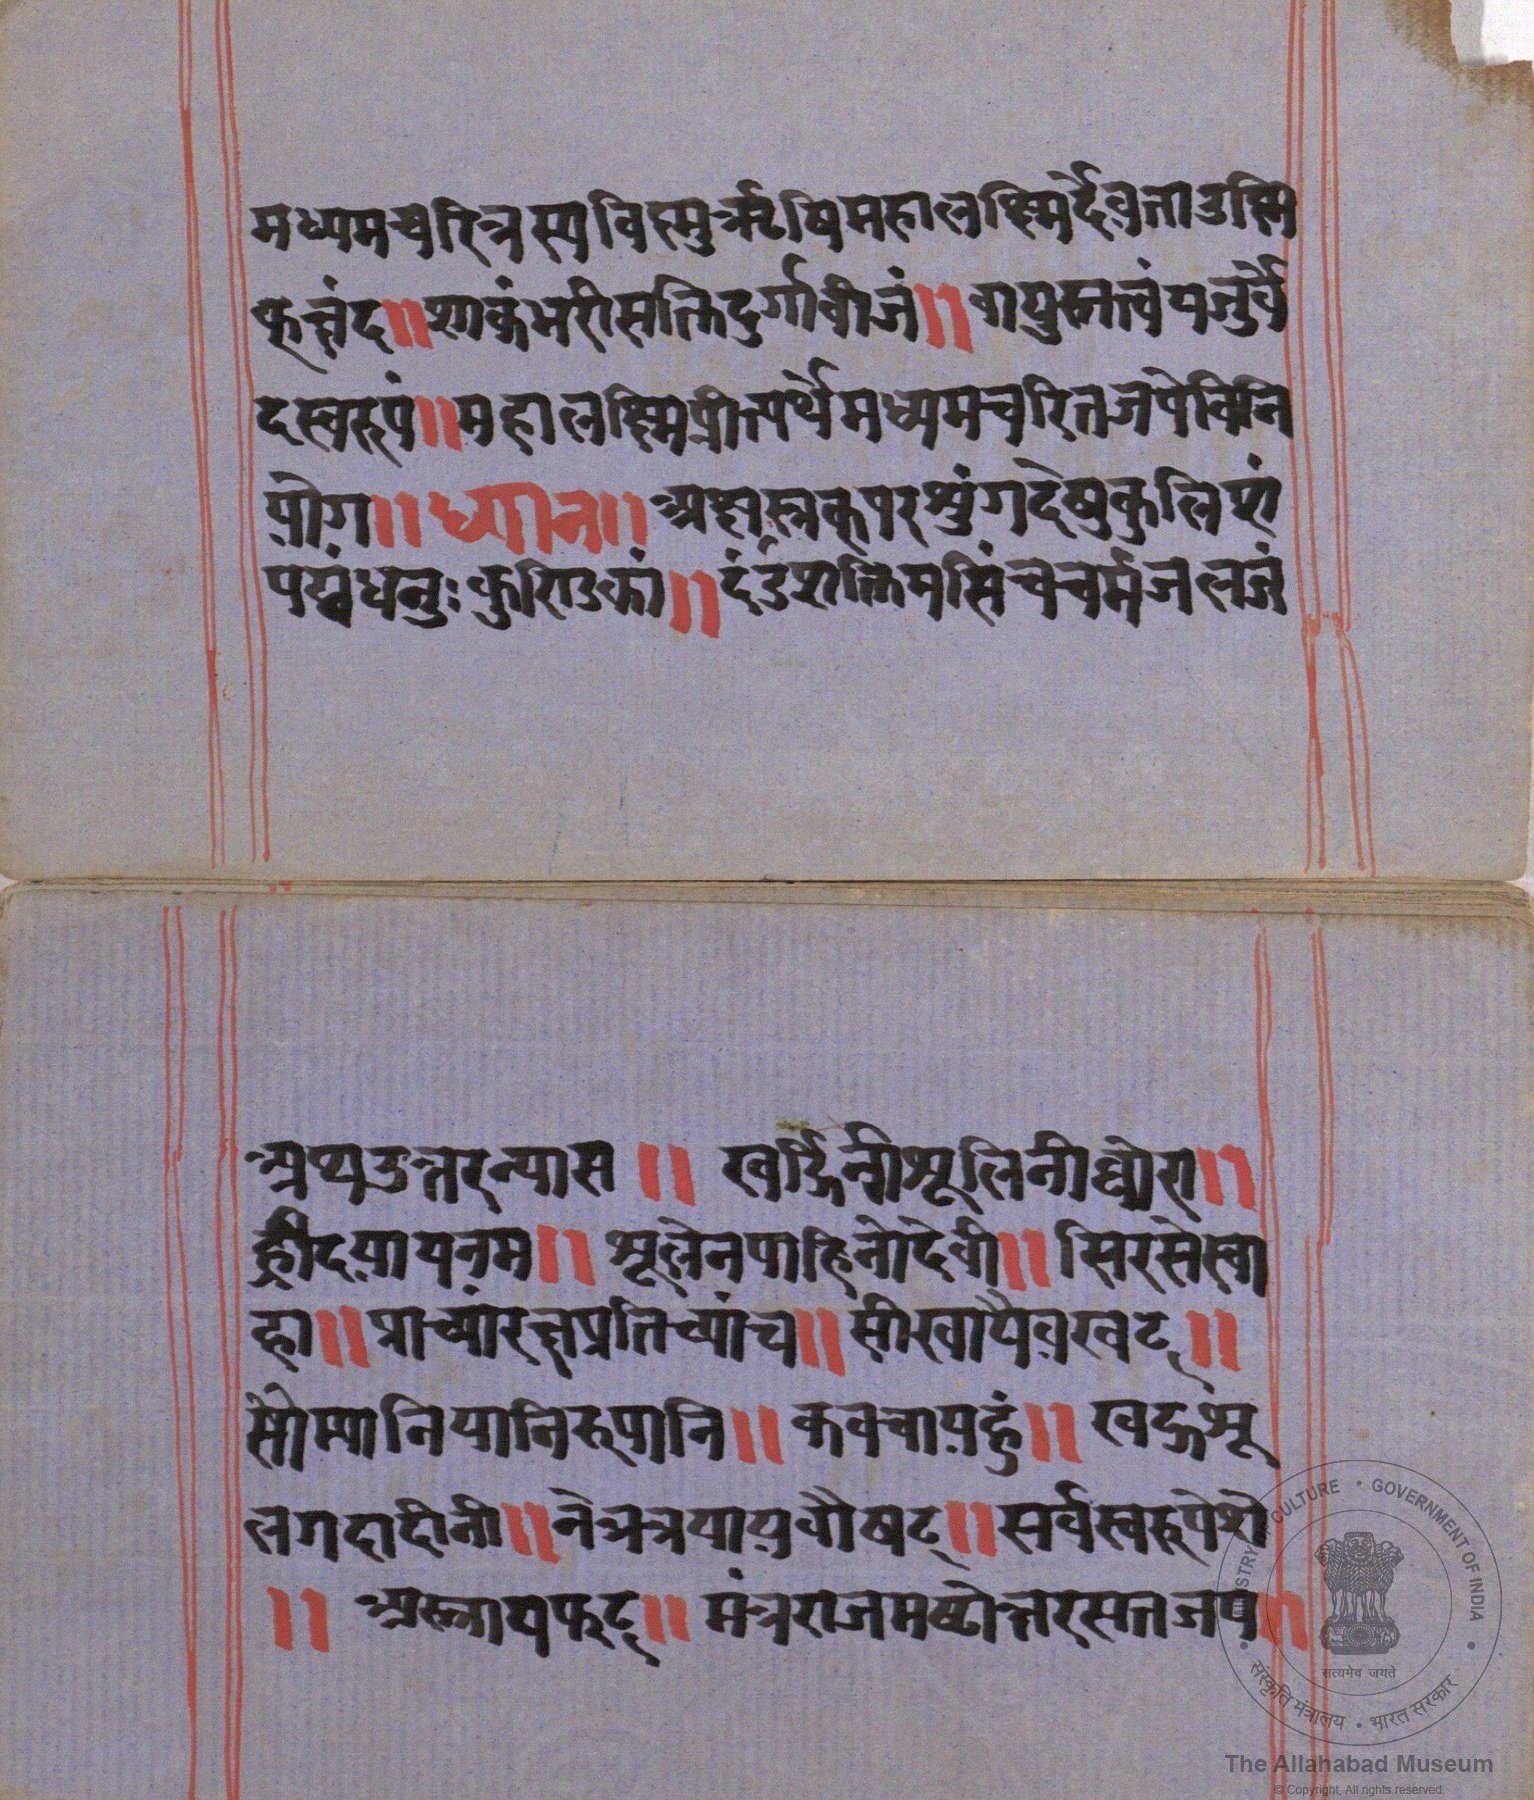 मध्यमचरित्रस्य विस्मुर्ऋषि महालक्ष्मिर्देवता उस्मि
क् छंद ॥ शाकंभरी सक्ति दुर्गा वीजं ॥ वायुस्तत्वं यजुर्वे
द स्वरूपं ॥ महालक्ष्मिप्रीत्यर्थे मध्यमचरित जपे विनि
योग ॥ ध्यान ॥ दे षु कुलिशं
पद्मं धनुः कुण्डिकां ॥ दंड शक्तिमसिं च चर्म जलजं
अथ उत्तरन्यास ॥ खर्ड्गिनी श्रूलिनी घोरा ॥
ह्रीदयाय नम ॥ श्रूलेन पाहि नो देवी ॥ सिरसे स्वा
हा ॥ प्राच्यां रक्ष प्रतिच्यां च ॥ सीखायै वखट् ॥
सौम्यानि यानि रूपानि ॥ कवचाय हुं ॥ खड्गश्रू
लगदादीनी ॥ नेत्रत्रयाय वौषट् ॥ सर्वस्वरूपे शे
॥ अस्त्राय फट् ॥ मंत्रराजमष्टोत्तर सत जप ॥
MINISTRY OF CULTURE • GOVERNMENT OF INDIA
सत्यमेव जयते
संस्कृति मंत्रालय • भारत सरकार
The Allahabad Museum
© Copyright, All rights reserved.